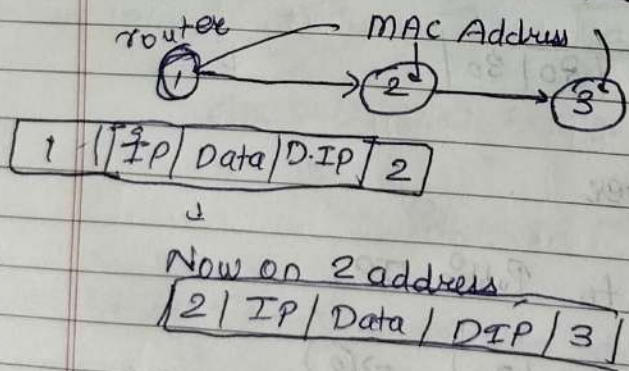 router MAC Address
1 2 3
1 | S.IP | Data | D.IP | 2
Now on 2 address
2 | IP | Data | DIP | 3